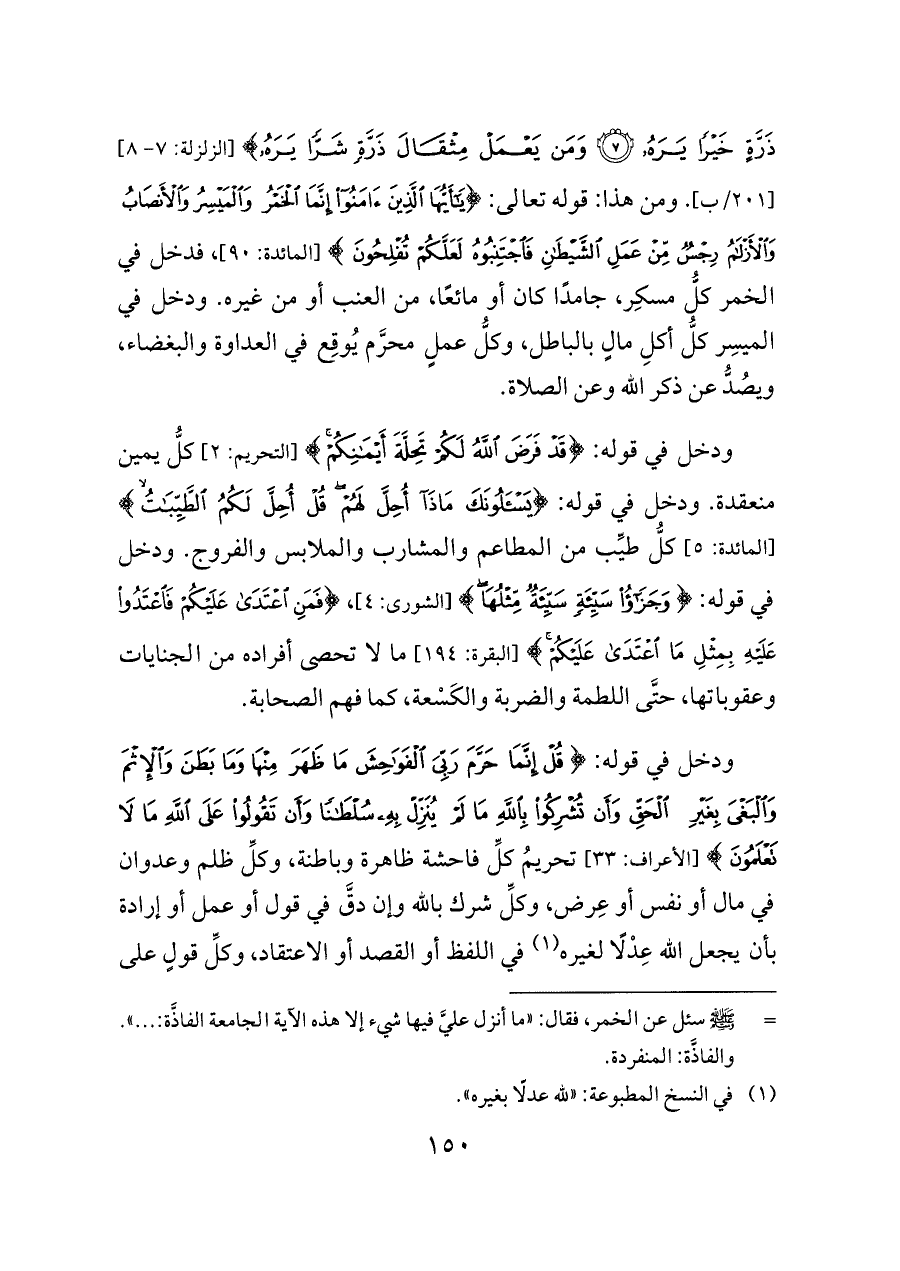 ذَرَّةٍ خَيْرًا يَرَهُۥ ۝٧ وَمَن يَعْمَلْ مِثْقَالَ ذَرَّةٍ شَرًّا يَرَهُۥ﴾ [الزلزلة: ٧-٨]
[٢٠١/ب]. ومن هذا: قوله تعالى: ﴿يَٰٓأَيُّهَا ٱلَّذِينَ ءَامَنُوٓا۟ إِنَّمَا ٱلْخَمْرُ وَٱلْمَيْسِرُ وَٱلْأَنصَابُ
وَٱلْأَزْلَٰمُ رِجْسٌ مِّنْ عَمَلِ ٱلشَّيْطَٰنِ فَٱجْتَنِبُوهُ لَعَلَّكُمْ تُفْلِحُونَ﴾ [المائدة: ٩٠]، فدخل في
الخمر كلُّ مسكِر، جامدًا كان أو مائعًا، من العنب أو من غيره. ودخل في
الميسِر كلُّ أكلِ مالٍ بالباطل، وكلُّ عملٍ محرَّم يُوقِع في العداوة والبغضاء،
ويصُدُّ عن ذكر الله وعن الصلاة.
ودخل في قوله: ﴿قَدْ فَرَضَ ٱللَّهُ لَكُمْ تَحِلَّةَ أَيْمَٰنِكُمْ ۚ﴾ [التحريم: ٢] كلُّ يمين
منعقدة. ودخل في قوله: ﴿يَسْـَٔلُونَكَ مَاذَآ أُحِلَّ لَهُمْ ۖ قُلْ أُحِلَّ لَكُمُ ٱلطَّيِّبَٰتُ ۙ﴾
[المائدة: ٥] كلُّ طيِّب من المطاعم والمشارب والملابس والفروج. ودخل
في قوله: ﴿وَجَزَٰٓؤُا۟ سَيِّئَةٍ سَيِّئَةٌ مِّثْلُهَا ۖ﴾ [الشورى: ٤]، ﴿فَمَنِ ٱعْتَدَىٰ عَلَيْكُمْ فَٱعْتَدُوا۟
عَلَيْهِ بِمِثْلِ مَا ٱعْتَدَىٰ عَلَيْكُمْ ۚ﴾ [البقرة: ١٩٤] ما لا تحصى أفراده من الجنايات
وعقوباتها، حتَّى اللطمة والضربة والكَسْعة، كما فهم الصحابة.
ودخل في قوله: ﴿قُلْ إِنَّمَا حَرَّمَ رَبِّىَ ٱلْفَوَٰحِشَ مَا ظَهَرَ مِنْهَا وَمَا بَطَنَ وَٱلْإِثْمَ
وَٱلْبَغْىَ بِغَيْرِ ٱلْحَقِّ وَأَن تُشْرِكُوا۟ بِٱللَّهِ مَا لَمْ يُنَزِّلْ بِهِۦ سُلْطَٰنًا وَأَن تَقُولُوا۟ عَلَى ٱللَّهِ مَا لَا
تَعْلَمُونَ﴾ [الأعراف: ٣٣] تحريمُ كلِّ فاحشة ظاهرة وباطنة، وكلِّ ظلم وعدوان
في مال أو نفس أو عِرض، وكلِّ شرك بالله وإن دقَّ في قول أو عمل أو إرادة
بأن يجعل الله عِدْلًا لغيره(١) في اللفظ أو القصد أو الاعتقاد، وكلِّ قولٍ على
= ﷺ سئل عن الخمر، فقال: «ما أنزل عليَّ فيها شيء إلا هذه الآية الجامعة الفاذَّة:...».
والفاذَّة: المنفردة.
(١) في النسخ المطبوعة: «لله عدلًا بغيره».
١٥٠